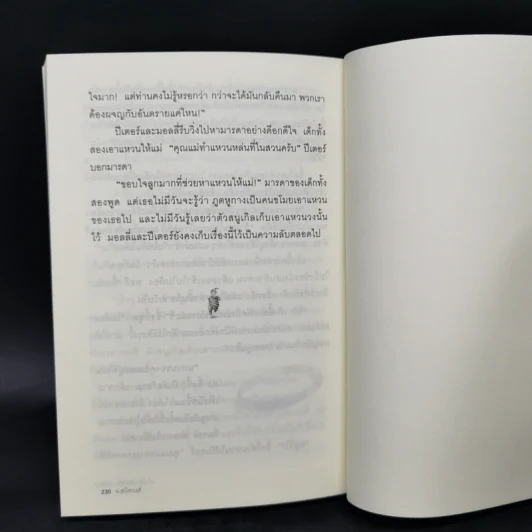 ใจมาก! แต่ท่านคงไม่รู้หรอกว่า กว่าจะได้มันกลับคืนมา พวกเรา
ต้องผจญกับอันตรายแค่ไหน!"
ปีเตอร์และมอลลี่รีบวิ่งไปหามารดาอย่างดีอกดีใจ เด็กทั้ง
สองเอาแหวนให้แม่ "คุณแม่ทำแหวนหล่นที่ในสวนครับ" ปีเตอร์
บอกมารดา
"ขอบใจลูกมากที่ช่วยหาแหวนให้แม่!" มารดาของเด็กทั้ง
สองพูด แต่เธอไม่มีวันจะรู้ว่า ภูตหูกางเป็นคนขโมยเอาแหวน
ของเธอไป และไม่มีวันรู้เลยว่าตัวสนูเกิลเก็บเอาแหวนวงนั้น
ไว้ มอลลี่และปีเตอร์ยังคงเก็บเรื่องนี้ไว้เป็นความลับตลอดไป
230